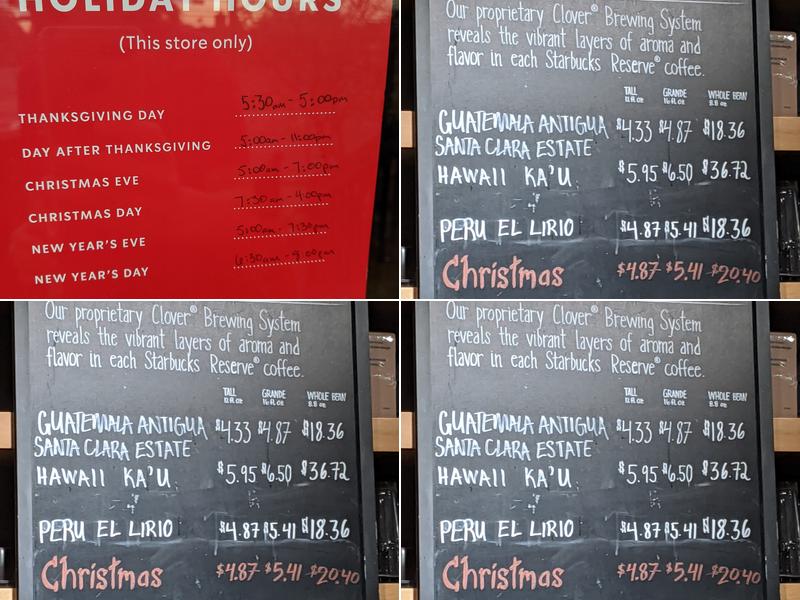 HOLIDAY HOURS
(This store only)
THANKSGIVING DAY 5:30am - 5:00pm
DAY AFTER THANKSGIVING 5:00am - 11:00pm
CHRISTMAS EVE 5:00am - 7:00pm
CHRISTMAS DAY 7:30am - 4:00pm
NEW YEAR'S EVE 5:00am - 7:30pm
NEW YEAR'S DAY 6:30am - 8:00pm
Our proprietary Clover® Brewing System
reveals the vibrant layers of aroma and
flavor in each Starbucks Reserve® coffee.
TALL GRANDE WHOLE BEAN
12 fl. oz 16 fl. oz 8.8 oz
GUATEMALA ANTIGUA $4.33 $4.87 $18.36
SANTA CLARA ESTATE
HAWAII KA'U $5.95 $6.50 $36.72
PERU EL LIRIO $4.87 $5.41 $18.36
Christmas $4.87 $5.41 $20.40
Our proprietary Clover® Brewing System
reveals the vibrant layers of aroma and
flavor in each Starbucks Reserve® coffee.
TALL GRANDE WHOLE BEAN
12 fl. oz 16 fl. oz 8.8 oz
GUATEMALA ANTIGUA $4.33 $4.87 $18.36
SANTA CLARA ESTATE
HAWAII KA'U $5.95 $6.50 $36.72
PERU EL LIRIO $4.87 $5.41 $18.36
Christmas $4.87 $5.41 $20.40
Our proprietary Clover® Brewing System
reveals the vibrant layers of aroma and
flavor in each Starbucks Reserve® coffee.
TALL GRANDE WHOLE BEAN
12 fl. oz 16 fl. oz 8.8 oz
GUATEMALA ANTIGUA $4.33 $4.87 $18.36
SANTA CLARA ESTATE
HAWAII KA'U $5.95 $6.50 $36.72
PERU EL LIRIO $4.87 $5.41 $18.36
Christmas $4.87 $5.41 $20.40